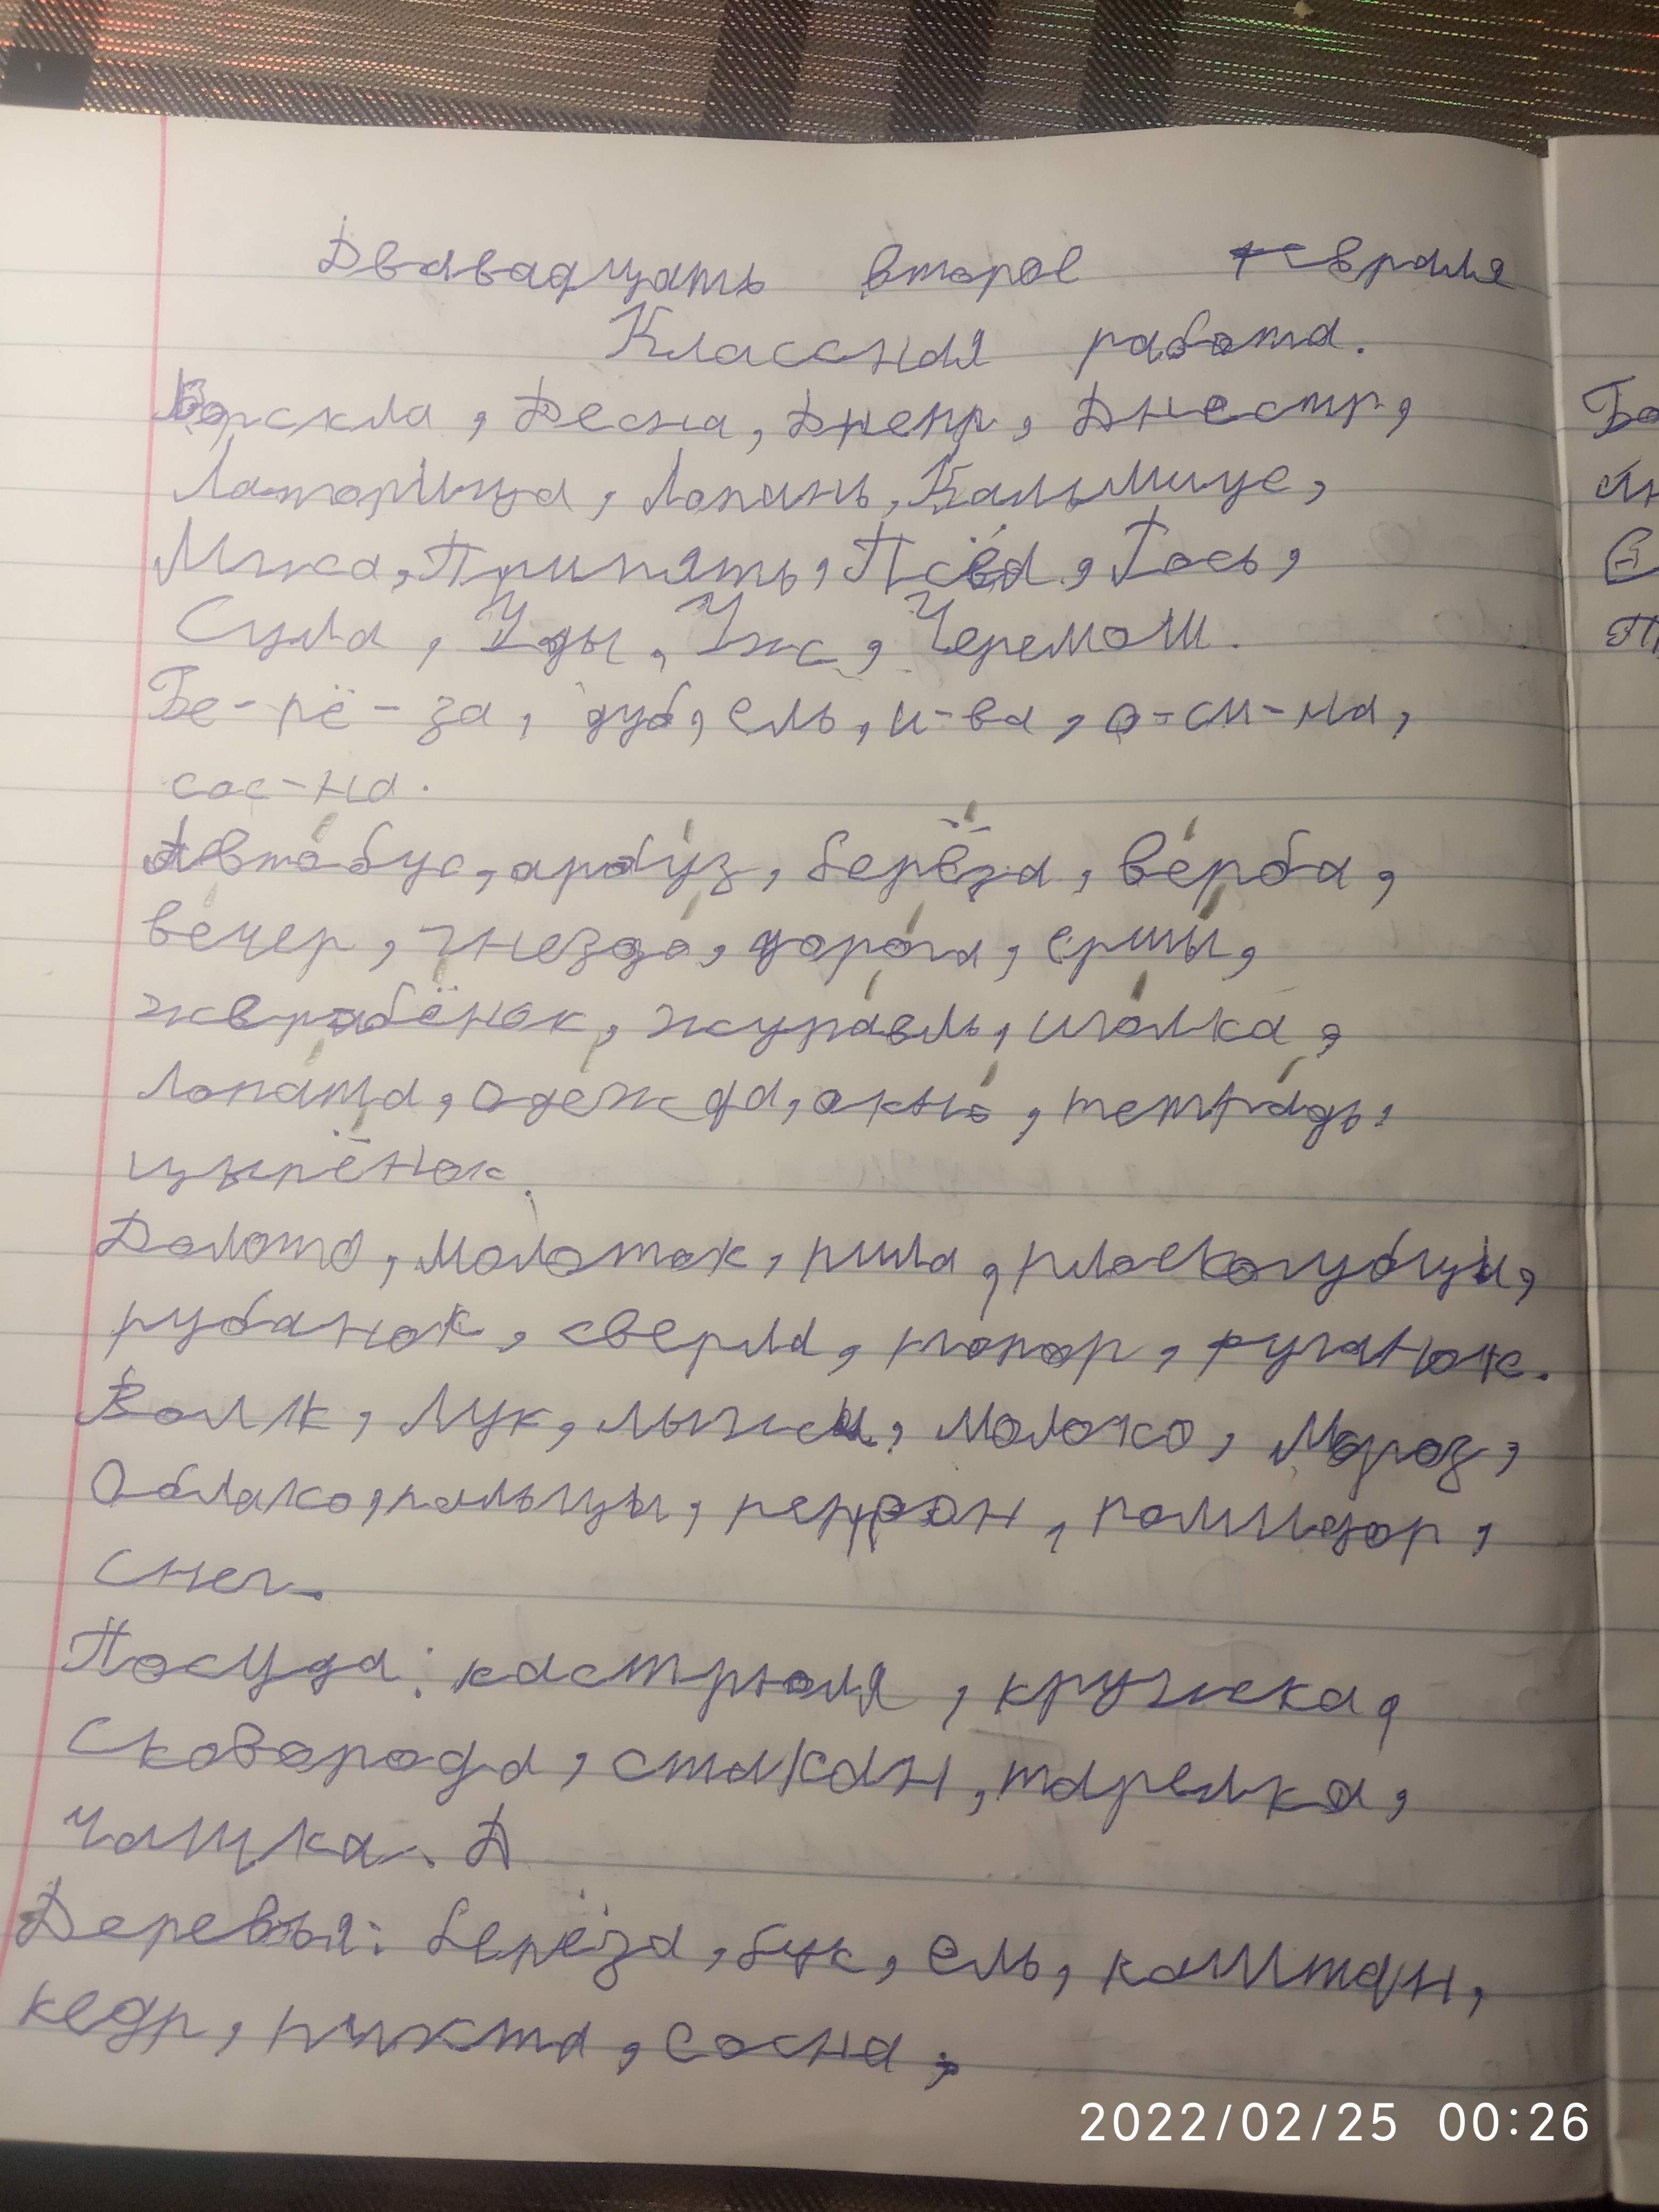 Двавадцать второе февраля
Классная работа.
Ворскла, Десна, Днепр, Днестр,
Латорица, Лопань, Кальмиус,
Мжа, Припять, Псёл, Рось,
Сула, Уды, Уж, Черемош.
Бе-рё-за, дуб, ель, и-ва, о-си-на,
сос-на.
Авто́бус, арбу́з, берёза, ве́рба,
ве́чер, гнездо́, доро́га, ерши́,
жеребёнок, жура́вль, иго́лка,
лопа́та, оде́жда, окно́, тетра́дь,
цыплёнок.
Долото, молоток, пила, плоскогубцы,
рубанок, сверла, топор, фуганок.
Волк, лук, лыжи, молоко, мороз,
Облако, пальцы, перрон, помидор,
снег.
Посуда: кастрюля, кружка,
Сковорода, стакан, тарелка,
чашка. Д
Деревья: берёза, бук, ель, каштан,
кедр, пихта, сосна,
Бо
П
2022/02/25 00:26